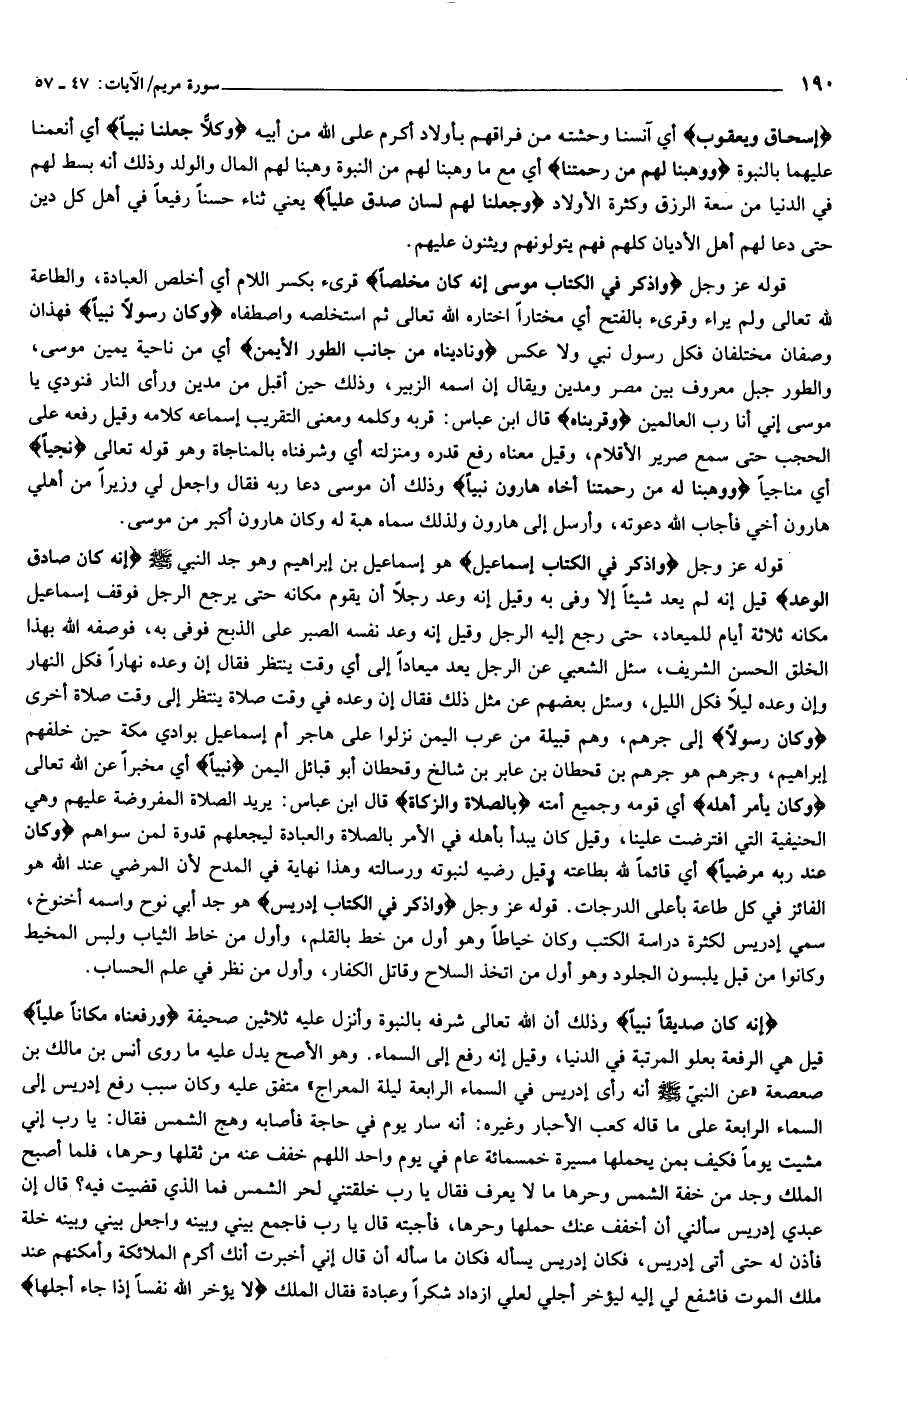 ١٩٠ سورة مريم/ الآيات: ٤٧ ـ ٥٧
﴿إسحاق ويعقوب﴾ أي آنسنا وحشته من فراقهم بأولاد أكرم على الله من أبيه ﴿وكلًّا جعلنا نبياً﴾ أي أنعمنا
عليهما بالنبوة ﴿ووهبنا لهم من رحمتنا﴾ أي مع ما وهبنا لهم من النبوة وهبنا لهم المال والولد وذلك أنه بسط لهم
في الدنيا من سعة الرزق وكثرة الأولاد ﴿وجعلنا لهم لسان صدق علياً﴾ يعني ثناء حسناً رفيعاً في أهل كل دين
حتى دعا لهم أهل الأديان كلهم فهم يتولونهم ويثنون عليهم.
قوله عز وجل ﴿واذكر في الكتاب موسى إنه كان مخلصاً﴾ قرىء بكسر اللام أي أخلص العبادة، والطاعة
لله تعالى ولم يراء وقرىء بالفتح أي مختاراً اختاره الله تعالى ثم استخلصه واصطفاه ﴿وكان رسولاً نبياً﴾ فهذان
وصفان مختلفان فكل رسول نبي ولا عكس ﴿وناديناه من جانب الطور الأيمن﴾ أي من ناحية يمين موسى،
والطور جبل معروف بين مصر ومدين ويقال إن اسمه الزبير، وذلك حين أقبل من مدين ورأى النار فنودي يا
موسى إني أنا رب العالمين ﴿وقربناه﴾ قال ابن عباس: قربه وكلمه ومعنى التقريب إسماعه كلامه وقيل رفعه على
الحجب حتى سمع صرير الأقلام، وقيل معناه رفع قدره ومنزلته أي وشرفناه بالمناجاة وهو قوله تعالى ﴿نجياً﴾
أي مناجياً ﴿ووهبنا له من رحمتنا أخاه هارون نبياً﴾ وذلك أن موسى دعا ربه فقال واجعل لي وزيراً من أهلي
هارون أخي فأجاب الله دعوته، وأرسل إلى هارون ولذلك سماه هبة له وكان هارون أكبر من موسى.
قوله عز وجل ﴿واذكر في الكتاب إسماعيل﴾ هو إسماعيل بن إبراهيم وهو جد النبي ﷺ ﴿إنه كان صادق
الوعد﴾ قيل إنه لم يعد شيئاً إلا وفى به وقيل إنه وعد رجلاً أن يقوم مكانه حتى يرجع الرجل فوقف إسماعيل
مكانه ثلاثة أيام للميعاد، حتى رجع إليه الرجل وقيل إنه وعد نفسه الصبر على الذبح فوفى به، فوصفه الله بهذا
الخلق الحسن الشريف، سئل الشعبي عن الرجل يعد ميعاداً إلى أي وقت ينتظر فقال إن وعده نهاراً فكل النهار
وإن وعده ليلاً فكل الليل، وسئل بعضهم عن مثل ذلك فقال إن وعده في وقت صلاة ينتظر إلى وقت صلاة أخرى
﴿وكان رسولاً﴾ إلى جرهم، وهم قبيلة من عرب اليمن نزلوا على هاجر أم إسماعيل بوادي مكة حين خلفهم
إبراهيم، وجرهم هو جرهم بن قحطان بن عابر بن شالخ وقحطان أبو قبائل اليمن ﴿نبياً﴾ أي مخبراً عن الله تعالى
﴿وكان يأمر أهله﴾ أي قومه وجميع أمته ﴿بالصلاة والزكاة﴾ قال ابن عباس: يريد الصلاة المفروضة عليهم وهي
الحنيفية التي افترضت علينا، وقيل كان يبدأ بأهله في الأمر بالصلاة والعبادة ليجعلهم قدوة لمن سواهم ﴿وكان
عند ربه مرضياً﴾ أي قائماً لله بطاعته وقيل رضيه لنبوته ورسالته وهذا نهاية في المدح لأن المرضي عند الله هو
الفائز في كل طاعة بأعلى الدرجات. قوله عز وجل ﴿واذكر في الكتاب إدريس﴾ هو جد أبي نوح واسمه أخنوخ،
سمي إدريس لكثرة دراسة الكتب وكان خياطاً وهو أول من خط بالقلم، وأول من خاط الثياب ولبس المخيط
وكانوا من قبل يلبسون الجلود وهو أول من اتخذ السلاح وقاتل الكفار، وأول من نظر في علم الحساب.
﴿إنه كان صديقاً نبياً﴾ وذلك أن الله تعالى شرفه بالنبوة وأنزل عليه ثلاثين صحيفة ﴿ورفعناه مكاناً علياً﴾
قيل هي الرفعة بعلو المرتبة في الدنيا، وقيل إنه رفع إلى السماء. وهو الأصح يدل عليه ما روى أنس بن مالك بن
صعصعة «عن النبيّ ﷺ أنه رأى إدريس في السماء الرابعة ليلة المعراج» متفق عليه وكان سبب رفع إدريس إلى
السماء الرابعة على ما قاله كعب الأحبار وغيره: أنه سار يوم في حاجة فأصابه وهج الشمس فقال: يا رب إني
مشيت يوماً فكيف بمن يحملها مسيرة خمسمائة عام في يوم واحد اللهم خفف عنه من ثقلها وحرها، فلما أصبح
الملك وجد من خفة الشمس وحرها ما لا يعرف فقال يا رب خلقتني لحر الشمس فما الذي قضيت فيه؟ قال إن
عبدي إدريس سألني أن أخفف عنك حملها وحرها، فأجبته قال يا رب فاجمع بيني وبينه واجعل بيني وبينه خلة
فأذن له حتى أتى إدريس، فكان إدريس يسأله فكان ما سأله أن قال إني أخبرت أنك أكرم الملائكة وأمكنهم عند
ملك الموت فاشفع لي إليه ليؤخر أجلي لعلي ازداد شكراً وعبادة فقال الملك ﴿لا يؤخر الله نفساً إذا جاء أجلها﴾